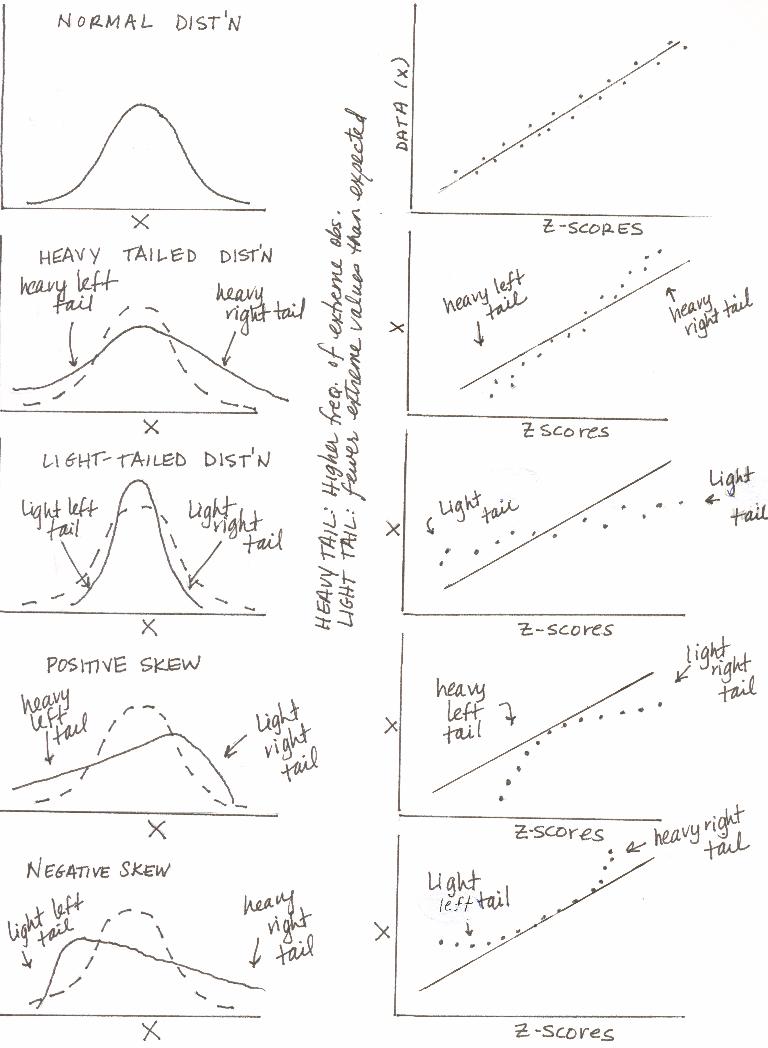 NORMAL DIST'N
X
DATA (X)
Z-SCORES
HEAVY TAILED DIST'N
heavy left
tail
heavy
right tail
X
heavy left
tail
heavy
right tail
X
Z scores
HEAVY TAIL: Higher freq. of extreme obs.
LIGHT TAIL: fewer extreme values than expected
LIGHT-TAILED DIST'N
Light left
tail
Light
right
tail
X
Light
tail
Light
tail
X
Z-scores
POSITIVE SKEW
heavy
left
tail
Light
right
tail
X
heavy
left
tail
light
right
tail
X
Z-scores
NEGATIVE SKEW
light left
tail
heavy
right
tail
X
Light
left tail
heavy right
tail
X
Z-scores